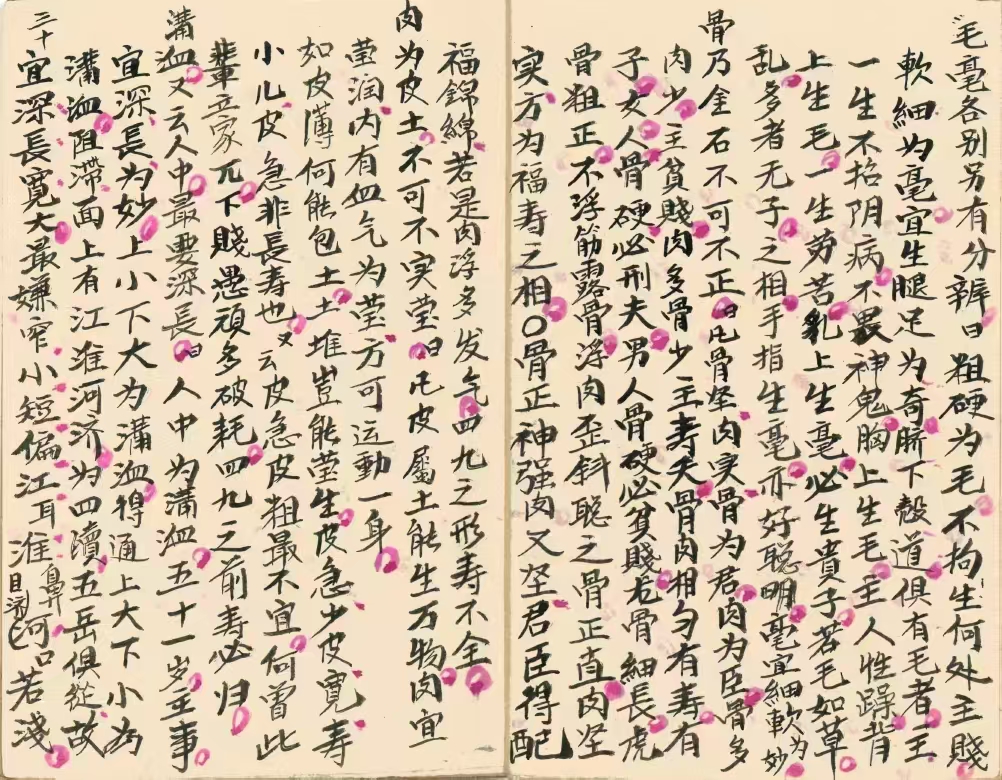 毛毫各别另有分辨曰粗硬为毛不拘生何处主賤
軟細为毫宜生腿足为奇臍下殼道俱有毛者主
一生不招阴病不畏神鬼胸上生毛主人性躁背
上生毛一生劳苦乳上生毫必生贵子若毛如草
乱多者无子之相手指生毫亦好聪明毫宜細軟为妙
骨乃金石不可不正曰凡骨坚肉实骨为君肉为臣骨多
肉少主貧賤肉多骨少主寿夭骨肉相匀有寿有
子女人骨硬必刑夫男人骨硬必貧賤若骨細長虎
骨粗正不浮筋露骨浮肉歪斜聪之骨正直肉坚
实方为福寿之相○骨正神强肉又坚君臣得配
福錦綿若是肉浮多发气四九之形寿不全
肉为皮土不可不实莹曰凡皮屬土能生万物肉宜
莹润内有血气为莹方可运動一身
如皮薄何能包土土堆豈能莹生皮急少皮寬寿
小儿皮急非長寿也又云皮急皮粗最不宜何曾此
輩立家兀下賤愚頑多破耗四九之前寿必归
溝洫又云人中最要深長曰人中为溝洫五十一岁主事
宜深長为妙上小下大为溝洫得通上大下小为
溝洫阻滞面上有江淮河济为四瀆五岳俱從故
三十宜深長寬大最嫌窄小短偏江耳淮目河口鼻若淺